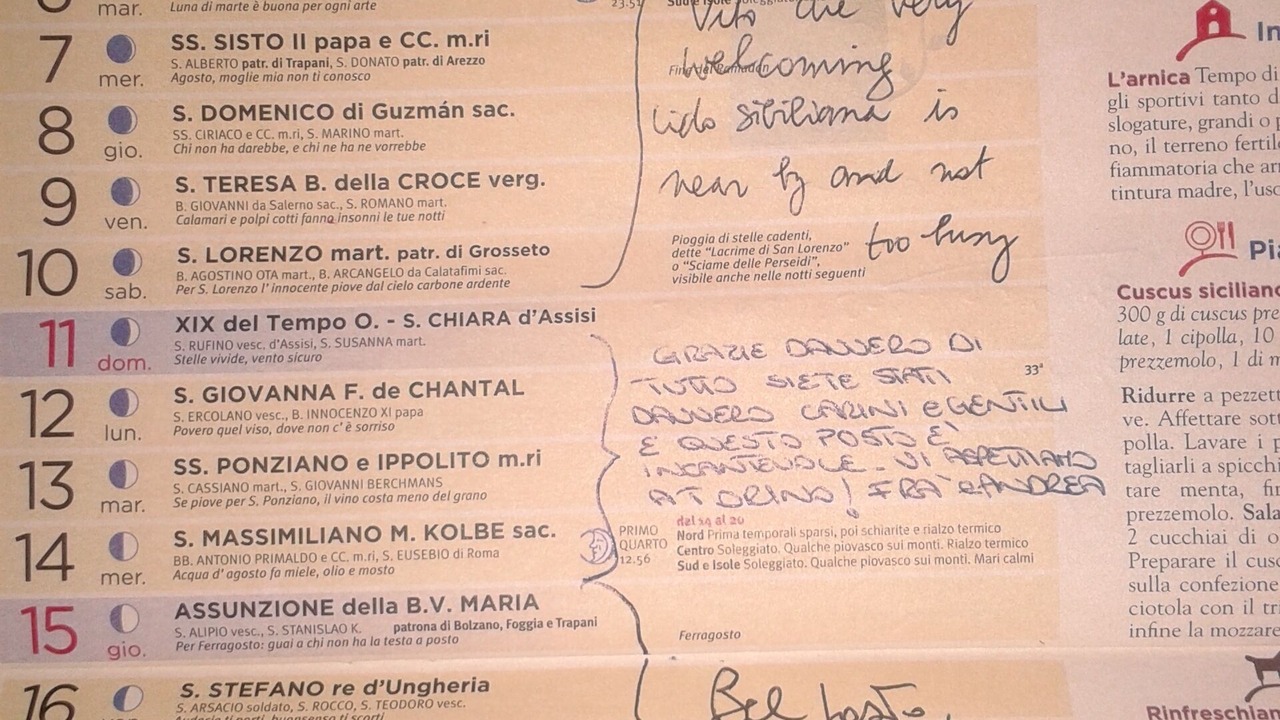 mar.
Luna di marte è buona per ogni arte
23.51
Vito the very
7
mer.
SS. SISTO II papa e CC. m.ri
S. ALBERTO patr. di Trapani, S. DONATO patr. di Arezzo
Agosto, moglie mia non ti conosco
Fine del Ramadan
welcoming
8
gio.
S. DOMENICO di Guzmán sac.
SS. CIRIACO e CC. m.ri, S. MARINO mart.
Chi non ha darebbe, e chi ne ha ne vorrebbe
lido siciliana is
9
ven.
S. TERESA B. della CROCE verg.
B. GIOVANNI da Salerno sac., S. ROMANO mart.
Calamari e polpi cotti fanno insonni le tue notti
near by and not
10
sab.
S. LORENZO mart. patr. di Grosseto
B. AGOSTINO OTA mart., B. ARCANGELO da Calatafimi sac.
Per S. Lorenzo l' innocente piove dal cielo carbone ardente
Pioggia di stelle cadenti,
dette "Lacrime di San Lorenzo"
o "Sciame delle Perseidi",
visibile anche nelle notti seguenti
too busy
11
dom.
XIX del Tempo O. - S. CHIARA d'Assisi
S. RUFINO vesc. d'Assisi, S. SUSANNA mart.
Stelle vivide, vento sicuro
33ª
GRAZIE DAVVERO DI
TUTTO SIETE STATI
DAVVERO CARINI e GENTILI
E QUESTO POSTO E'
INCANTEVOLE. VI ASPETTIAMO
A TORINO! FRA' e ANDREA
12
lun.
S. GIOVANNA F. de CHANTAL
S. ERCOLANO vesc., B. INNOCENZO XI papa
Povero quel viso, dove non c' è sorriso
13
mar.
SS. PONZIANO e IPPOLITO m.ri
S. CASSIANO mart., S. GIOVANNI BERCHMANS
Se piove per S. Ponziano, il vino costa meno del grano
14
mer.
S. MASSIMILIANO M. KOLBE sac.
BB. ANTONIO PRIMALDO e CC. m.ri, S. EUSEBIO di Roma
Acqua d' agosto fa miele, olio e mosto
PRIMO
QUARTO
12.56
del 14 al 20
Nord Prima temporali sparsi, poi schiarite e rialzo termico
Centro Soleggiato. Qualche piovasco sui monti. Rialzo termico
Sud e Isole Soleggiato. Qualche piovasco sui monti. Mari calmi
15
gio.
ASSUNZIONE della B.V. MARIA
S. ALIPIO vesc., S. STANISLAO K. patrona di Bolzano, Foggia e Trapani
Per Ferragosto: guai a chi non ha la testa a posto
Ferragosto
16
S. STEFANO re d'Ungheria
S. ARSACIO soldato, S. ROCCO, S. TEODORO vesc.
Bel posto,
L'arnica Tempo di
gli sportivi tanto d
slogature, grandi o p
no, il terreno fertile
fiammatoria che arr
tintura madre, l'uso
Pia
Cuscus siciliano
300 g di cuscus pre
late, 1 cipolla, 10
prezzemolo, 1 di m
Ridurre a pezzett
ve. Affettare sott
polla. Lavare i p
tagliarli a spicchi
tare menta, fin
prezzemolo. Sala
2 cucchiai di o
Preparare il cusc
sulla confezione
ciotola con il tr
infine la mozzare
Rinfreschian